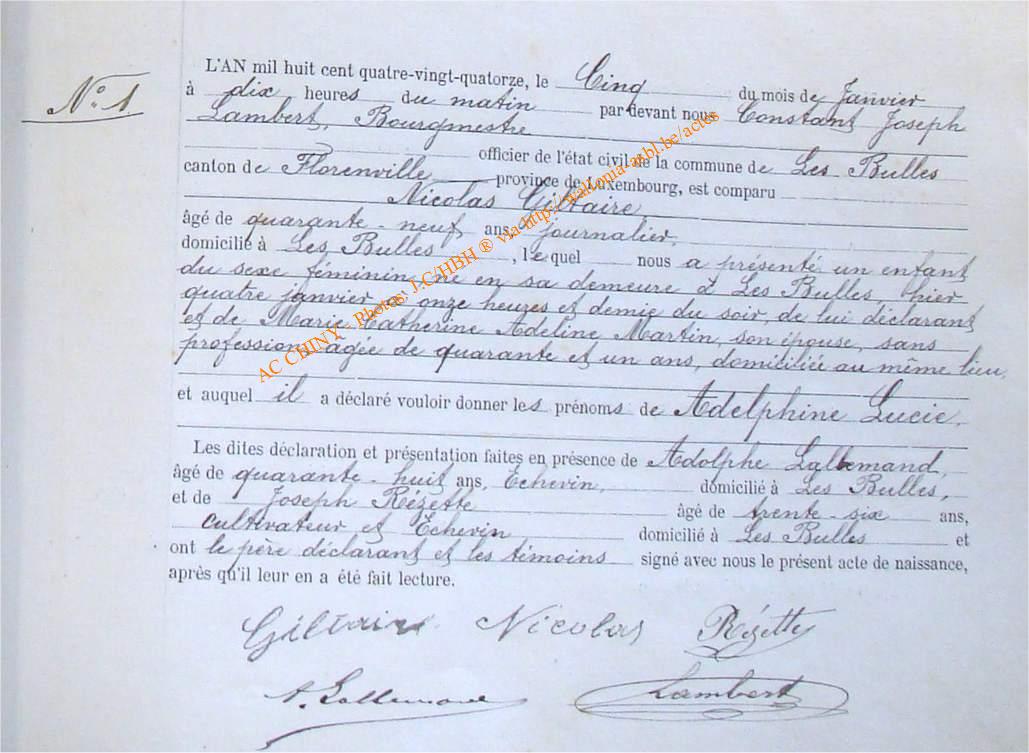 N° 1.
L'AN mil huit cent quatre-vingt-quatorze, le Cinq du mois de Janvier
à dix heures du matin par devant nous Constant Joseph
Lambert, Bourgmestre
officier de l'état civil de la commune de Les Bulles
canton de Florenville province de Luxembourg, est comparu
Nicolas Giltaire,
âgé de quarante-neuf ans, journalier,
domicilié à Les Bulles, lequel nous a présenté un enfant
du sexe féminin, né en sa demeure à Les Bulles, hier
quatre janvier à onze heures et demie du soir, de lui déclarant
et de Marie Catherine Adeline Martin, son épouse, sans
profession, âgée de quarante et un ans, domiciliée au même lieu,
et auquel il a déclaré vouloir donner les prénoms de Adelphine Lucie.
Les dites déclaration et présentation faites en présence de Adolphe Lallemand,
âgé de quarante-huit ans, Echevin, domicilié à Les Bulles,
et de Joseph Rézette âgé de trente-six ans,
cultivateur et Echevin domicilié à Les Bulles et
ont le père déclarant et les témoins signé avec nous le présent acte de naissance,
après qu'il leur en a été fait lecture.
Giltaire Nicolas Rézette
A. Lallemand Lambert
AC CHINY Photos: J.C/HBH ® via http://wallonia-asbl.be/actes